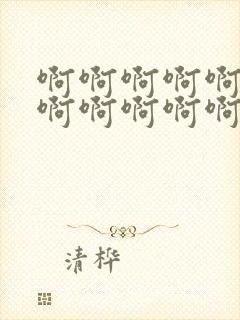 啊啊啊啊啊
啊啊啊啊啊
清桦